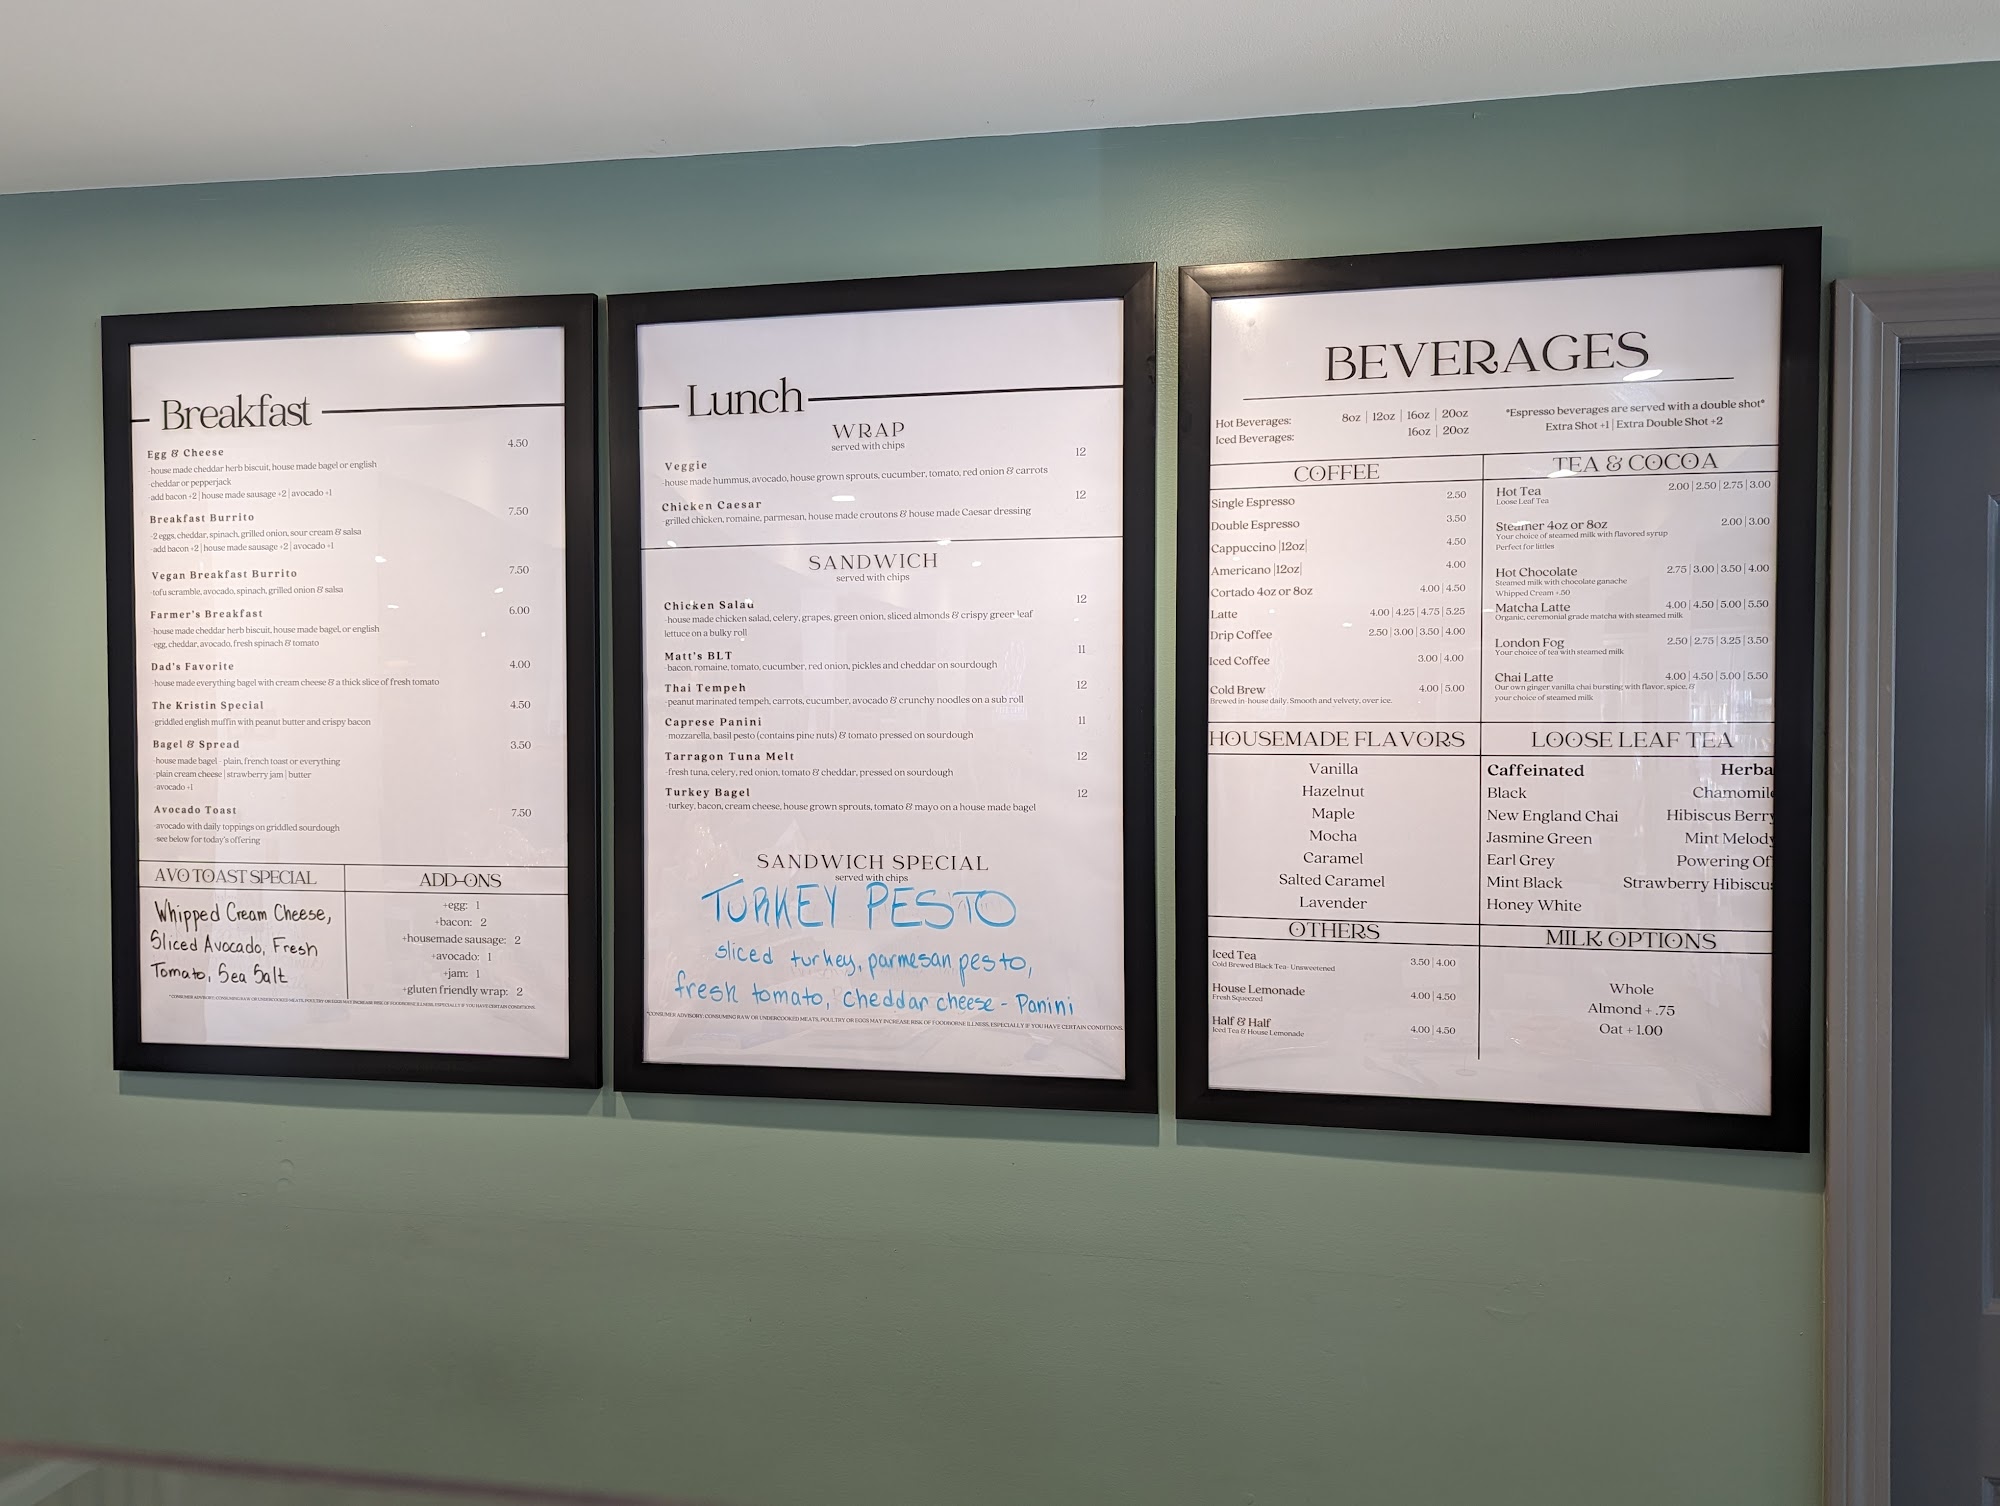 Breakfast
Egg & Cheese 4.50
-house made cheddar herb biscuit, house made bagel or english
-cheddar or pepperjack
-add bacon +2 | house made sausage +2 | avocado +1
Breakfast Burrito 7.50
-2 eggs, cheddar, spinach, grilled onion, sour cream & salsa
-add bacon +2 | house made sausage +2 | avocado +1
Vegan Breakfast Burrito 7.50
-tofu scramble, avocado, spinach, grilled onion & salsa
Farmer's Breakfast 6.00
-house made cheddar herb biscuit, house made bagel, or english
-egg, cheddar, avocado, fresh spinach & tomato
Dad's Favorite 4.00
-house made everything bagel with cream cheese & a thick slice of fresh tomato
The Kristin Special 4.50
-griddled english muffin with peanut butter and crispy bacon
Bagel & Spread 3.50
-house made bagel - plain, french toast or everything
-plain cream cheese | strawberry jam | butter
-avocado +1
Avocado Toast 7.50
-avocado with daily toppings on griddled sourdough
-see below for today's offering
AVO TOAST SPECIAL
Whipped Cream Cheese,
Sliced Avocado, Fresh
Tomato, Sea Salt
ADD-ONS
+egg: 1
+bacon: 2
+housemade sausage: 2
+avocado: 1
+jam: 1
+gluten friendly wrap: 2
*CONSUMER ADVISORY: CONSUMING RAW OR UNDERCOOKED MEATS, POULTRY OR EGGS MAY INCREASE RISK OF FOODBORNE ILLNESS, ESPECIALLY IF YOU HAVE CERTAIN CONDITIONS.
Lunch
WRAP
served with chips
Veggie 12
-house made hummus, avocado, house grown sprouts, cucumber, tomato, red onion & carrots
Chicken Caesar 12
-grilled chicken, romaine, parmesan, house made croutons & house made Caesar dressing
SANDWICH
served with chips
Chicken Salad 12
-house made chicken salad, celery, grapes, green onion, sliced almonds & crispy green leaf
lettuce on a bulky roll
Matt's BLT 11
-bacon, romaine, tomato, cucumber, red onion, pickles and cheddar on sourdough
Thai Tempeh 12
-peanut marinated tempeh, carrots, cucumber, avocado & crunchy noodles on a sub roll
Caprese Panini 11
mozzarella, basil pesto (contains pine nuts) & tomato pressed on sourdough
Tarragon Tuna Melt 12
-fresh tuna, celery, red onion, tomato & cheddar, pressed on sourdough
Turkey Bagel 12
-turkey, bacon, cream cheese, house grown sprouts, tomato & mayo on a house made bagel
SANDWICH SPECIAL
served with chips
TURKEY PESTO
sliced turkey, parmesan pesto,
fresh tomato, cheddar cheese - Panini
*CONSUMER ADVISORY: CONSUMING RAW OR UNDERCOOKED MEATS, POULTRY OR EGGS MAY INCREASE RISK OF FOODBORNE ILLNESS, ESPECIALLY IF YOU HAVE CERTAIN CONDITIONS.
BEVERAGES
Hot Beverages: 8oz | 12oz | 16oz | 20oz
Iced Beverages: 16oz | 20oz
*Espresso beverages are served with a double shot*
Extra Shot +1 | Extra Double Shot +2
COFFEE
Single Espresso 2.50
Double Espresso 3.50
Cappuccino |12oz| 4.50
Americano |12oz| 4.00
Cortado 4oz or 8oz 4.00 | 4.50
Latte 4.00 | 4.25 | 4.75 | 5.25
Drip Coffee 2.50 | 3.00 | 3.50 | 4.00
Iced Coffee 3.00 | 4.00
Cold Brew 4.00 | 5.00
Brewed in-house daily. Smooth and velvety, over ice.
TEA & COCOA
Hot Tea 2.00 | 2.50 | 2.75 | 3.00
Loose Leaf Tea
Steamer 4oz or 8oz 2.00 | 3.00
Your choice of steamed milk with flavored syrup
Perfect for littles
Hot Chocolate 2.75 | 3.00 | 3.50 | 4.00
Steamed milk with chocolate ganache
Whipped Cream +.50
Matcha Latte 4.00 | 4.50 | 5.00 | 5.50
Organic, ceremonial grade matcha with steamed milk
London Fog 2.50 | 2.75 | 3.25 | 3.50
Your choice of tea with steamed milk
Chai Latte 4.00 | 4.50 | 5.00 | 5.50
Our own ginger vanilla chai bursting with flavor, spice, &
your choice of steamed milk
HOUSEMADE FLAVORS
Vanilla
Hazelnut
Maple
Mocha
Caramel
Salted Caramel
Lavender
LOOSE LEAF TEA
Caffeinated Herba
Black Chamomile
New England Chai Hibiscus Berry
Jasmine Green Mint Melody
Earl Grey Powering Of
Mint Black Strawberry Hibiscus
Honey White
OTHERS
Iced Tea 3.50 | 4.00
Cold Brewed Black Tea- Unsweetened
House Lemonade 4.00 | 4.50
Fresh Squeezed
Half & Half 4.00 | 4.50
Iced Tea & House Lemonade
MILK OPTIONS
Whole
Almond + .75
Oat + 1.00